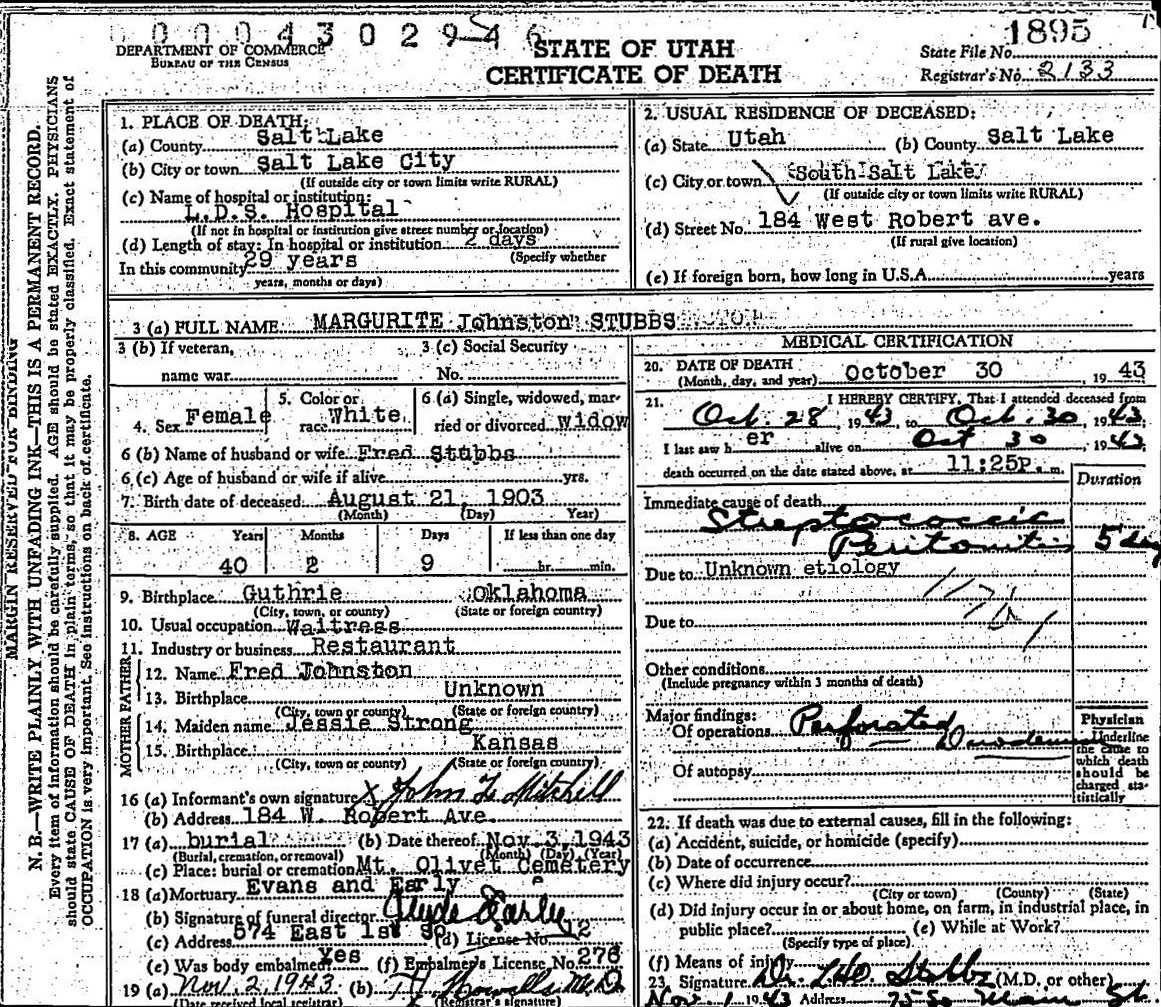 0 0 0 4 3 0 2 9 4 6
1895
DEPARTMENT OF COMMERCE
BUREAU OF THE CENSUS
STATE OF UTAH
CERTIFICATE OF DEATH
State File No.
Registrar's No. 2133
MARGIN RESERVED FOR BINDING
N. B.—WRITE PLAINLY WITH UNFADING INK—THIS IS A PERMANENT RECORD.
Every item of information should be carefully supplied. AGE should be stated EXACTLY. PHYSICIANS
should state CAUSE OF DEATH in plain terms, so that it may be properly classified. Exact statement of
OCCUPATION is very important. See instructions on back of certificate.
1. PLACE OF DEATH:
(a) County Salt Lake
(b) City or town Salt Lake City
(If outside city or town limits write RURAL)
(c) Name of hospital or institution:
L.D.S. Hospital
(If not in hospital or institution give street number or location)
(d) Length of stay: In hospital or institution 2 days
(Specify whether
In this community 29 years
years, months or days)
2. USUAL RESIDENCE OF DECEASED:
(a) State Utah (b) County Salt Lake
(c) City or town South Salt Lake
(If outside city or town limits write RURAL)
(d) Street No. 184 West Robert ave.
(If rural give location)
(e) If foreign born, how long in U.S.A. years
3 (a) FULL NAME MARGURITE Johnston STUBBS
3 (b) If veteran, 3 (c) Social Security
name war No.
4. Sex Female 5. Color or race White 6 (a) Single, widowed, married or divorced widow
6 (b) Name of husband or wife Fred Stubbs
6 (c) Age of husband or wife if alive yrs.
7. Birth date of deceased August 21, 1903
(Month) (Day) Year)
8. AGE Years Months Days If less than one day
40 2 9 hr. min.
9. Birthplace Guthrie Oklahoma
(City, town, or county) (State or foreign country)
10. Usual occupation Waitress
11. Industry or business Restaurant
FATHER
12. Name Fred Johnston
13. Birthplace Unknown
(City, town or county) (State or foreign country)
MOTHER
14. Maiden name Jessie Strong
15. Birthplace Kansas
(City, town, or county) (State or foreign country)
16 (a) Informant's own signature X John F Mitchell
(b) Address 184 W. Robert Ave.
17 (a) burial (b) Date thereof Nov. 3, 1943
(Burial, cremation, or removal) (Month) (Day) (Year)
(c) Place: burial or cremation Mt. Olivet Cemetery
18 (a) Mortuary Evans and Early
(b) Signature of funeral director Clyde Early
(c) Address 574 East 1st So. (d) License No. 12
(e) Was body embalmed? Yes (f) Embalmer's License No. 276
19 (a) Nov 2 1943 (b) M.D.
(Date received local registrar) (Registrar's signature)
MEDICAL CERTIFICATION
20. DATE OF DEATH October 30, 1943
(Month, day, and year)
21. I HEREBY CERTIFY, That I attended deceased from
Oct. 28, 1943, to Oct. 30, 1943,
I last saw h er alive on Oct 30, 1943,
death occurred on the date stated above, at 11:25P. m.
Duration
Immediate cause of death
Streptococcic
Peritonitis 5 day
Due to Unknown etiology
Due to
Other conditions
(Include pregnancy within 3 months of death)
Major findings:
Of operations Perforated Duodenum
Of autopsy
Physician
Underline
the cause to
which death
should be
charged sta-
tistically
22. If death was due to external causes, fill in the following:
(a) Accident, suicide, or homicide (specify)
(b) Date of occurrence
(c) Where did injury occur?
(City or town) (County) (State)
(d) Did injury occur in or about home, on farm, in industrial place, in
public place? (e) While at Work?
(Specify type of place)
(f) Means of injury
23. Signature Dr. Stubbs (M.D. or other)
Nov 1 1943 Address 75 So Main St